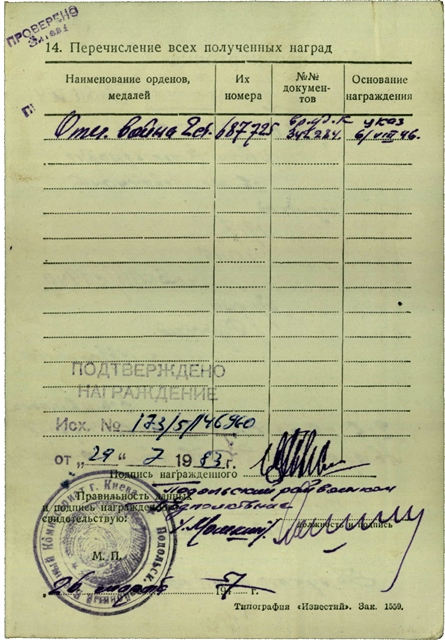 ПРОВЕРЕНО
14. Перечисление всех полученных наград
Наименование орденов, медалей
Их номера
№№ документов
Основание награждения
Отеч. война 2 ст. 687725
вр. уд. к
342224.
указ
6/VIII 46.
ПОДТВЕРЖДЕНО
НАГРАЖДЕНИЕ
Исх. № 173/5/146960
от „29" 7 1983 г.
Подпись награжденного
Правильность данных
и подпись награжденного
свидетельствую:
Подольский райвоенком
должность и подпись
М. П.
197 г.
Типография «Известий». Зак. 1559.